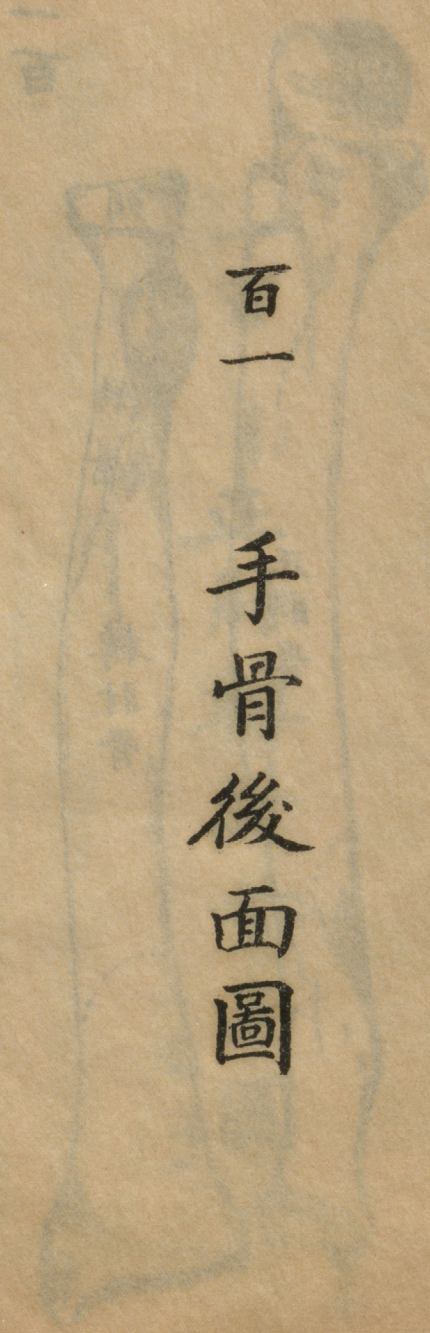 百一 手骨後面圖